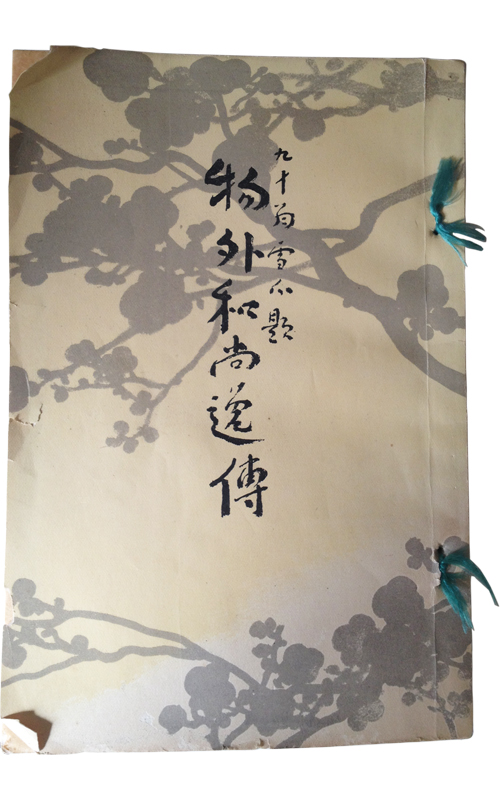 九十翁雪爪題
物外和尚逸傳